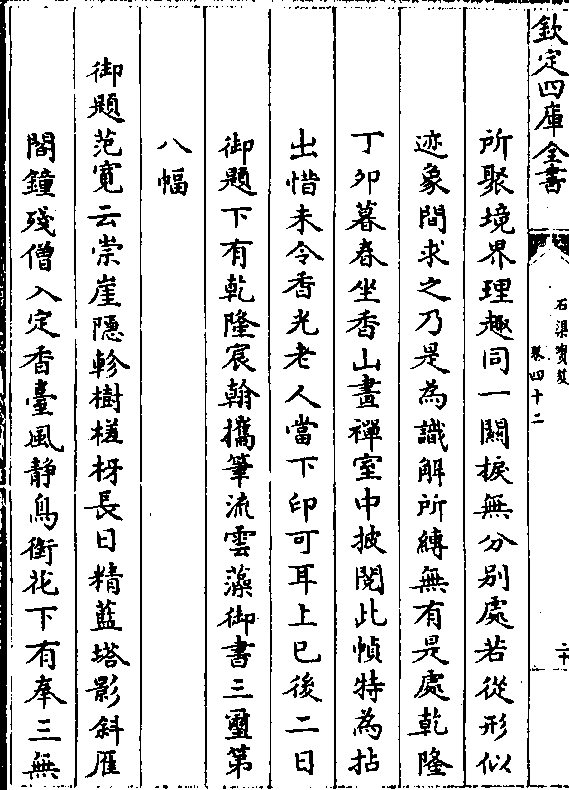 欽定四庫全書
石渠寳笈
卷四十二
二十
所聚境界理趣同一關捩無分別處若從形似
迹象間求之乃是為識解所縳無有是處乾隆
丁卯暮春坐香山畫禪室中披閱此幀特為拈
出惜未令香光老人當下印可耳上巳後二日
御題下有乾隆宸翰攜筆流雲藻御書三璽第
八幅
御題范寛云崇崖隱軫樹槎枒長日精藍塔影斜雁
閣鐘殘僧入定香臺風静鳥銜花下有奉三無